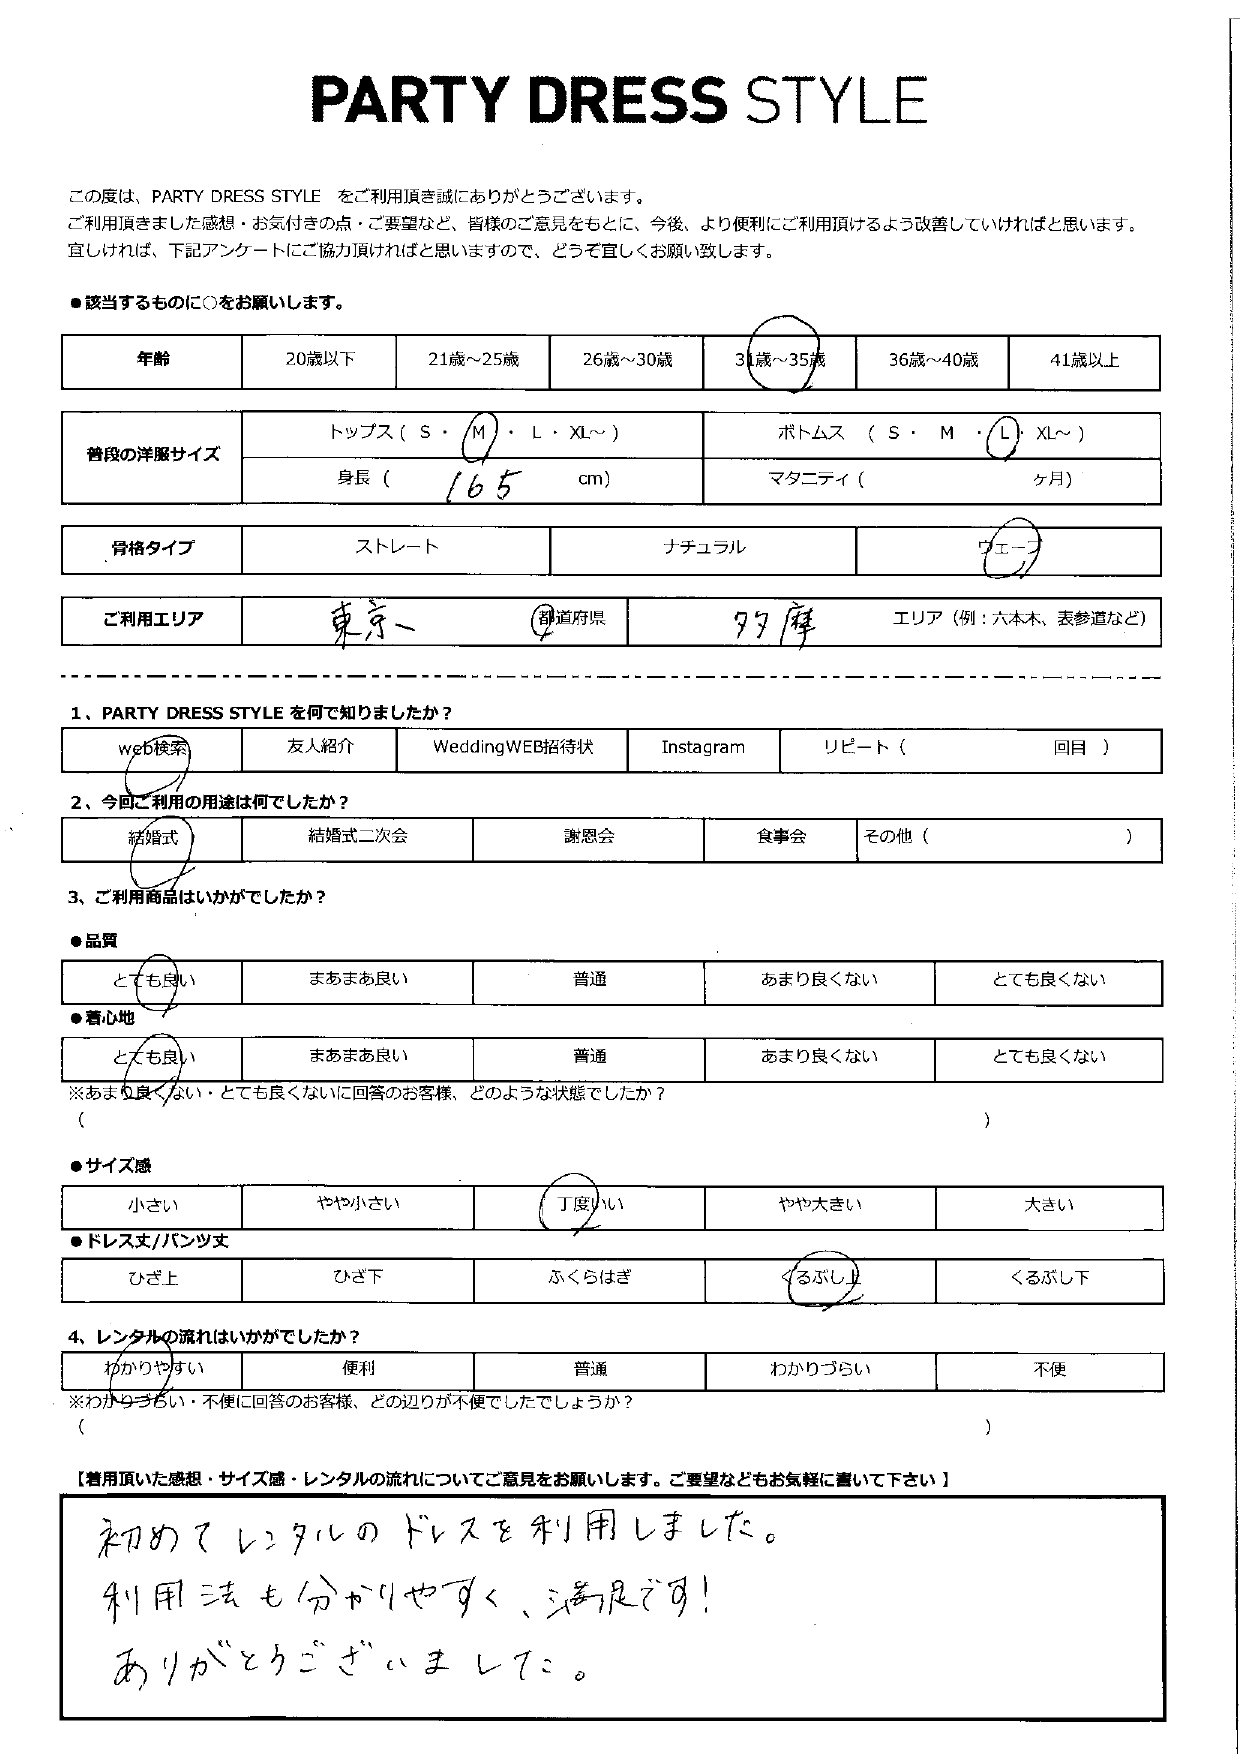 PARTY DRESS STYLE
この度は、PARTY DRESS STYLE をご利用頂き誠にありがとうございます。
ご利用頂きました感想・お気付きの点・ご要望など、皆様のご意見をもとに、今後、より便利にご利用頂けるよう改善していければと思います。
宜しければ、下記アンケートにご協力頂ければと思いますので、どうぞ宜しくお願い致します。
●該当するものに○をお願いします。
年齢 20歳以下 21歳～25歳 26歳～30歳 31歳～35歳 36歳～40歳 41歳以上
普段の洋服サイズ トップス ( S ・ M ・ L ・ XL～ ) ボトムス ( S ・ M ・ L ・ XL～ )
身長 ( 165 cm) マタニティ ( ヶ月)
骨格タイプ ストレート ナチュラル ウェーブ
ご利用エリア 東京 都道府県 多摩 エリア（例：六本木、表参道など）
1、PARTY DRESS STYLE を何で知りましたか？
web検索 友人紹介 WeddingWEB招待状 Instagram リピート ( 回目 )
2、今回ご利用の用途は何でしたか？
結婚式 結婚式二次会 謝恩会 食事会 その他 ( )
3、ご利用商品はいかがでしたか？
●品質
とても良い まあまあ良い 普通 あまり良くない とても良くない
●着心地
とても良い まあまあ良い 普通 あまり良くない とても良くない
※あまり良くない・とても良くないに回答のお客様、どのような状態でしたか？
( )
●サイズ感
小さい やや小さい 丁度いい やや大きい 大きい
●ドレス丈/パンツ丈
ひざ上 ひざ下 ふくらはぎ くるぶし上 くるぶし下
4、レンタルの流れはいかがでしたか？
わかりやすい 便利 普通 わかりづらい 不便
※わかりづらい・不便に回答のお客様、どの辺りが不便でしたでしょうか？
( )
【着用頂いた感想・サイズ感・レンタルの流れについてご意見をお願いします。ご要望などもお気軽に書いて下さい】
初めてレンタルのドレスを利用しました。
利用法も分かりやすく、満足です！
ありがとうございました。